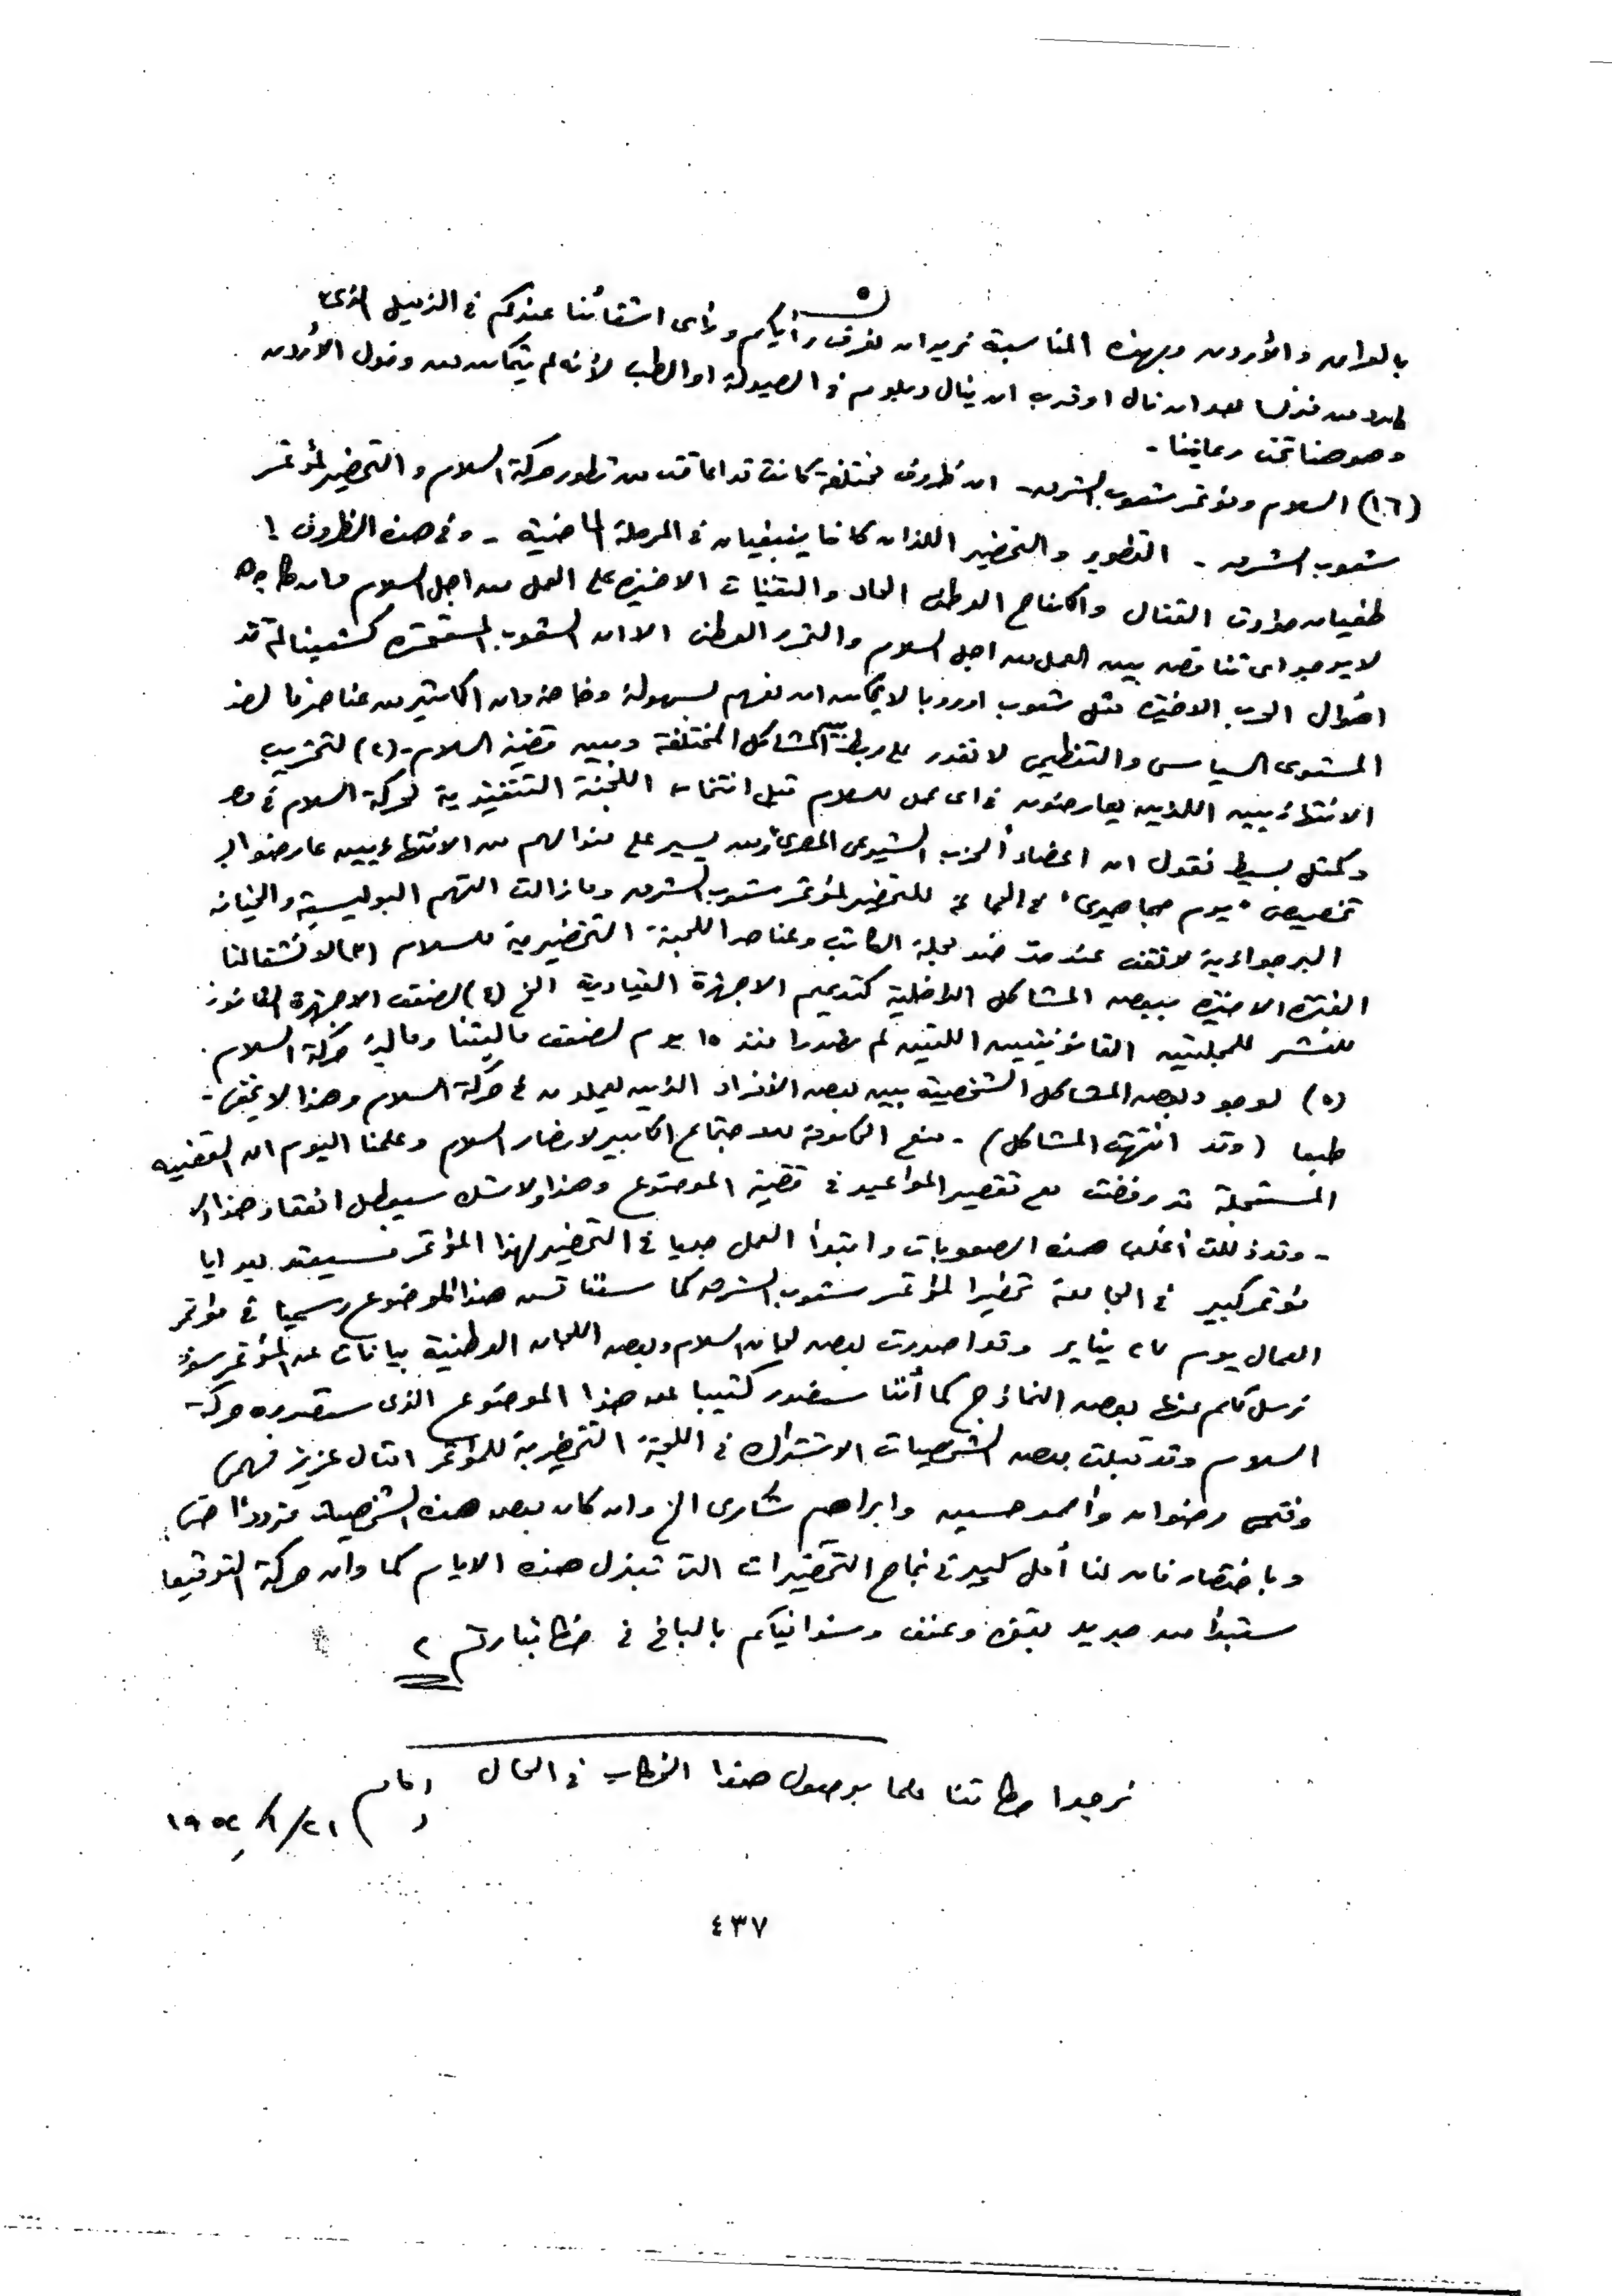 ٥
بالعراق والأردن وبهذه المناسبة نريد ان نعرف رأيكم ورأى اشقائنا عندكم فى الزميل الذى
طرد من فرنسا بعد ان نال او قرب ان ينال دبلوم فى الصيدلة او الطب لأنه لم يتمكن من دخول الأردن
وهو هنا تحت رعايتنا -
(١٦) السلام ومؤتمر شعوب الشرق - ان ظروف مختلفة كانت قد اعاقت من تطور حركة السلام والتحضير لمؤتمر
شعوب الشرق - التطوير والتحضير اللذان كانا ينبغيان فى المرحلة الماضية - وفى هذه الظروف ١
طغيان حوادث القتال والكفاح الوطنى الحاد والتقنيات الاخيرة على العمل من اجل السلام فان كان
لا يوجد اى تناقض بين العمل من اجل السلام والتحرر الوطنى الا ان الشعوب المستعمرة كشعبنا لم تذق
اهوال الحرب الاخيرة مثل شعوب اوروبا لا يمكن ان تفهم بسهولة وخاصة وان الكثير من عناصرنا لضعف
المستوى السياسى والتنظيمى لا تقدر على ربط بين المشاكل المختلفة وبين قضية السلام - (٢) لتخريب
الانتهازيين اللذين يعارضون فى اى عمل للسلام قبل انتخاب اللجنة التنفيذية لحركة السلام فى مصر
وكمثل بسيط نقول ان اعضاء الحزب الشيوعى المصرى ومن يسير على منوالهم من الانتهازيين عارضوا
تخصيص "يوم جماهيرى" فى الجامعة للتحضير لمؤتمر شعوب الشرق وما زالت التهم البوليسية والخيانة
البرجوازية لا تقف عند حد ضد مجلة الكاتب وعناصر اللجنة التحضيرية للسلام (٣) لانشغالنا
الفترة الاخيرة ببعض المشاكل الداخلية كتدعيم الاجهزة القيادية الخ (٤) لضعف الاجهزة القانونية
للنشر للمجلتين القانونيتين اللتين لم تصدرا منذ ١٥ يوم لضعف ماليتنا ومالية حركة السلام .
(٥) لوجود بعض المشاكل الشخصية بين بعض الأفراد الذين يعملون فى حركة السلام وهذا لا يخفى -
طبعا (وقد انتهت المشاكل) - منع الحكومة للاجتماع الكبير لانصار السلام وعلمنا اليوم ان القضية
المستعجلة قد رفضت مع تقصير المواعيد فى قضية الموضوع وهذا ولا شك سيعطل انعقاد هذا الا
- وقد ذللت أغلب هذه الصعوبات وابتدأ العمل جديا فى التحضير لهذا المؤتمر فسيعقد بعد ايام
مؤتمر كبير فى الجامعة تحضيرا لمؤتمر شعوب الشرق كما سنناقش هذا الموضوع رسميا فى مؤتمر
العمال يوم ٢٧ يناير وقد اصدرت بعض لجان السلام وبعض اللجان الوطنية بيانات عن المؤتمر سوف
نرسل لكم منها بعض النماذج كما أننا سنصدر كتيبا عن هذا الموضوع الذى ستصدره حركة
السلام وقد قبلت بعض الشخصيات الاشتراك فى اللجنة التحضيرية للمؤتمر امثال عزيز فهمى
وفتحى رضوان وأحمد حسين وابراهيم شكرى الخ وان كان بعض هذه الشخصيات مترددا
وباختصار فان لنا أمل كبير فى نجاح التحضيرات التى تبذل هذه الايام كما وان حركة التوقيعات
ستبدأ من جديد بقوة وعنف وسنوافيكم بالباقى فى خطابنا رقم ٢
نرجو احاطتنا علما بوصول هذا الخطاب فى الحال
٢١/١/١٩٥٢
٤٣٧